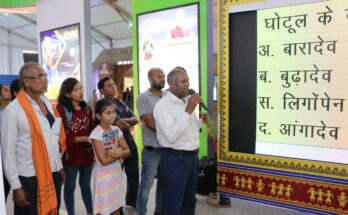 घोटुल के
अ. बारादेव
ब. बुढ़ादेव
स. लिगोंपेन
द. आंगादेव